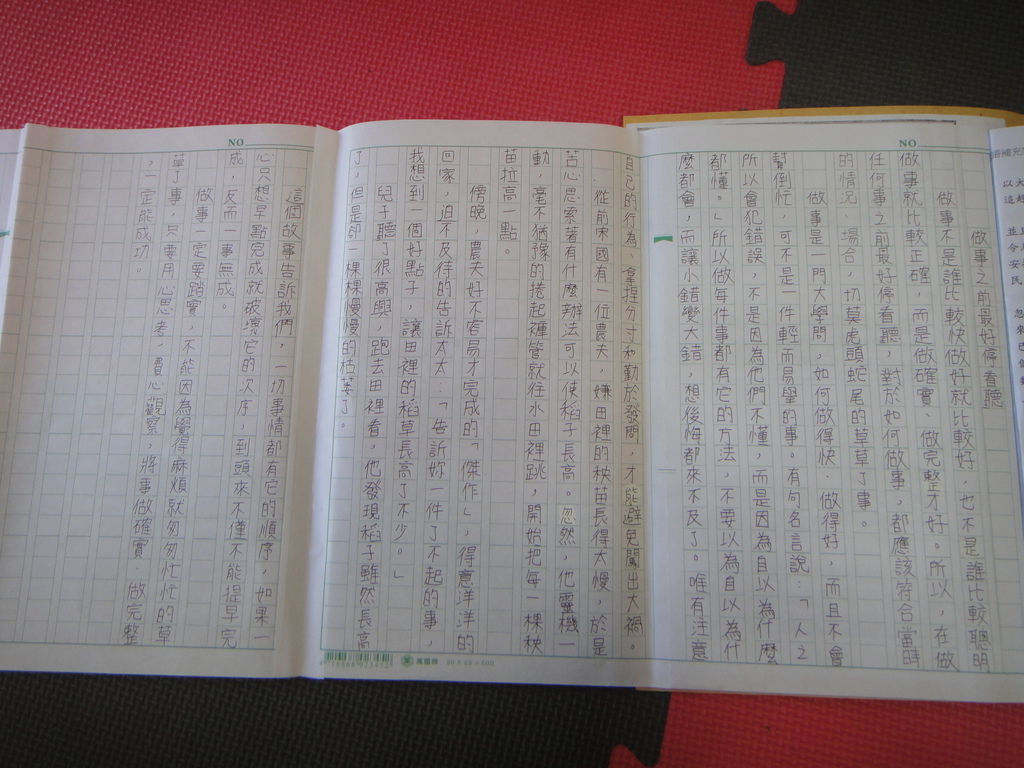 NO
做事之前最好停看聽
做事不是誰比較快做好就比較好，也不是誰比較聰明
做事就比較正確，而是做確實、做完整才好。所以，在做
任何事之前最好停看聽，對於如何做事，都應該符合當時
的情況、場合，切莫虎頭蛇尾的草草了事。
做事是一門大學問，如何做得快、做得好，而且不會
幫倒忙，可不是一件輕而易舉的事。有句名言說：「人之
所以會犯錯誤，不是因為他們不懂，而是因為自以為什麼
都懂。」所以做每件事都有它的方法，不要以為自以為什
麼都會，而讓小錯變大錯，想後悔都來不及了。唯有注意
自己的行為、拿捏分寸和勤於發問，才能避免闖出大禍。
從前宋國有一位農夫，嫌田裡的秧苗長得太慢，於是
苦心思索著有什麼辦法可以使稻子長高。忽然，他靈機一
動，毫不猶豫的捲起褲管就往水田裡跳，開始把每一棵秧
苗拉高一點。
傍晚，農夫好不容易才完成的「傑作」，得意洋洋的
回家，迫不及待的告訴太太：「告訴妳一件了不起的事，
我想到一個好點子，讓田裡的稻草長高了不少。」
兒子聽了很高興，跑去田裡看，他發現稻子雖然長高
了，但是卻一棵棵慢慢的枯萎了。
NO
這個故事告訴我們，一切事情都有它的順序，如果一
心只想早點完成就破壞它的次序，到頭來不僅不能提早完
成，反而一事無成。
做事一定要踏實，不能因為覺得麻煩就匆匆忙忙的草
草了事，只要用心思考，費心觀察，將事做確實、做完整
，一定能成功。
萬國牌